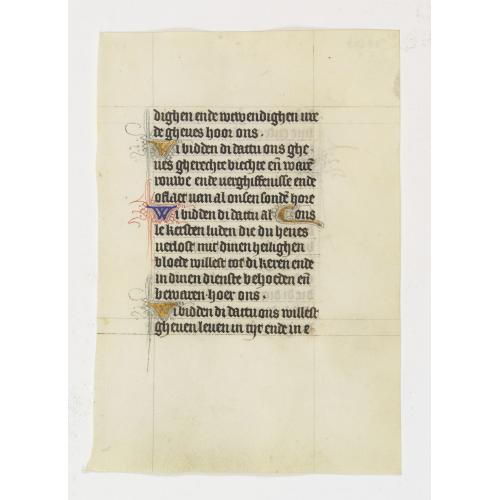 dighen ende wevendighen vre
de gheues hoor ons.
Wi bidden di dattu ons ghe
ues gherechte biechte eñ ware
rouwe ende verghiffenisse ende
oflaer van al onsen sondē hore
Wi bidden di dattu al ons
le kersten luden die du heues
verlost mit dinen heilighen
bloede willest tot di keren ende
in dinen dienste behoeden eñ
bewaren hoer ons.
Wi bidden di dattu ons willest
gheuen leuen in tyt ende in e